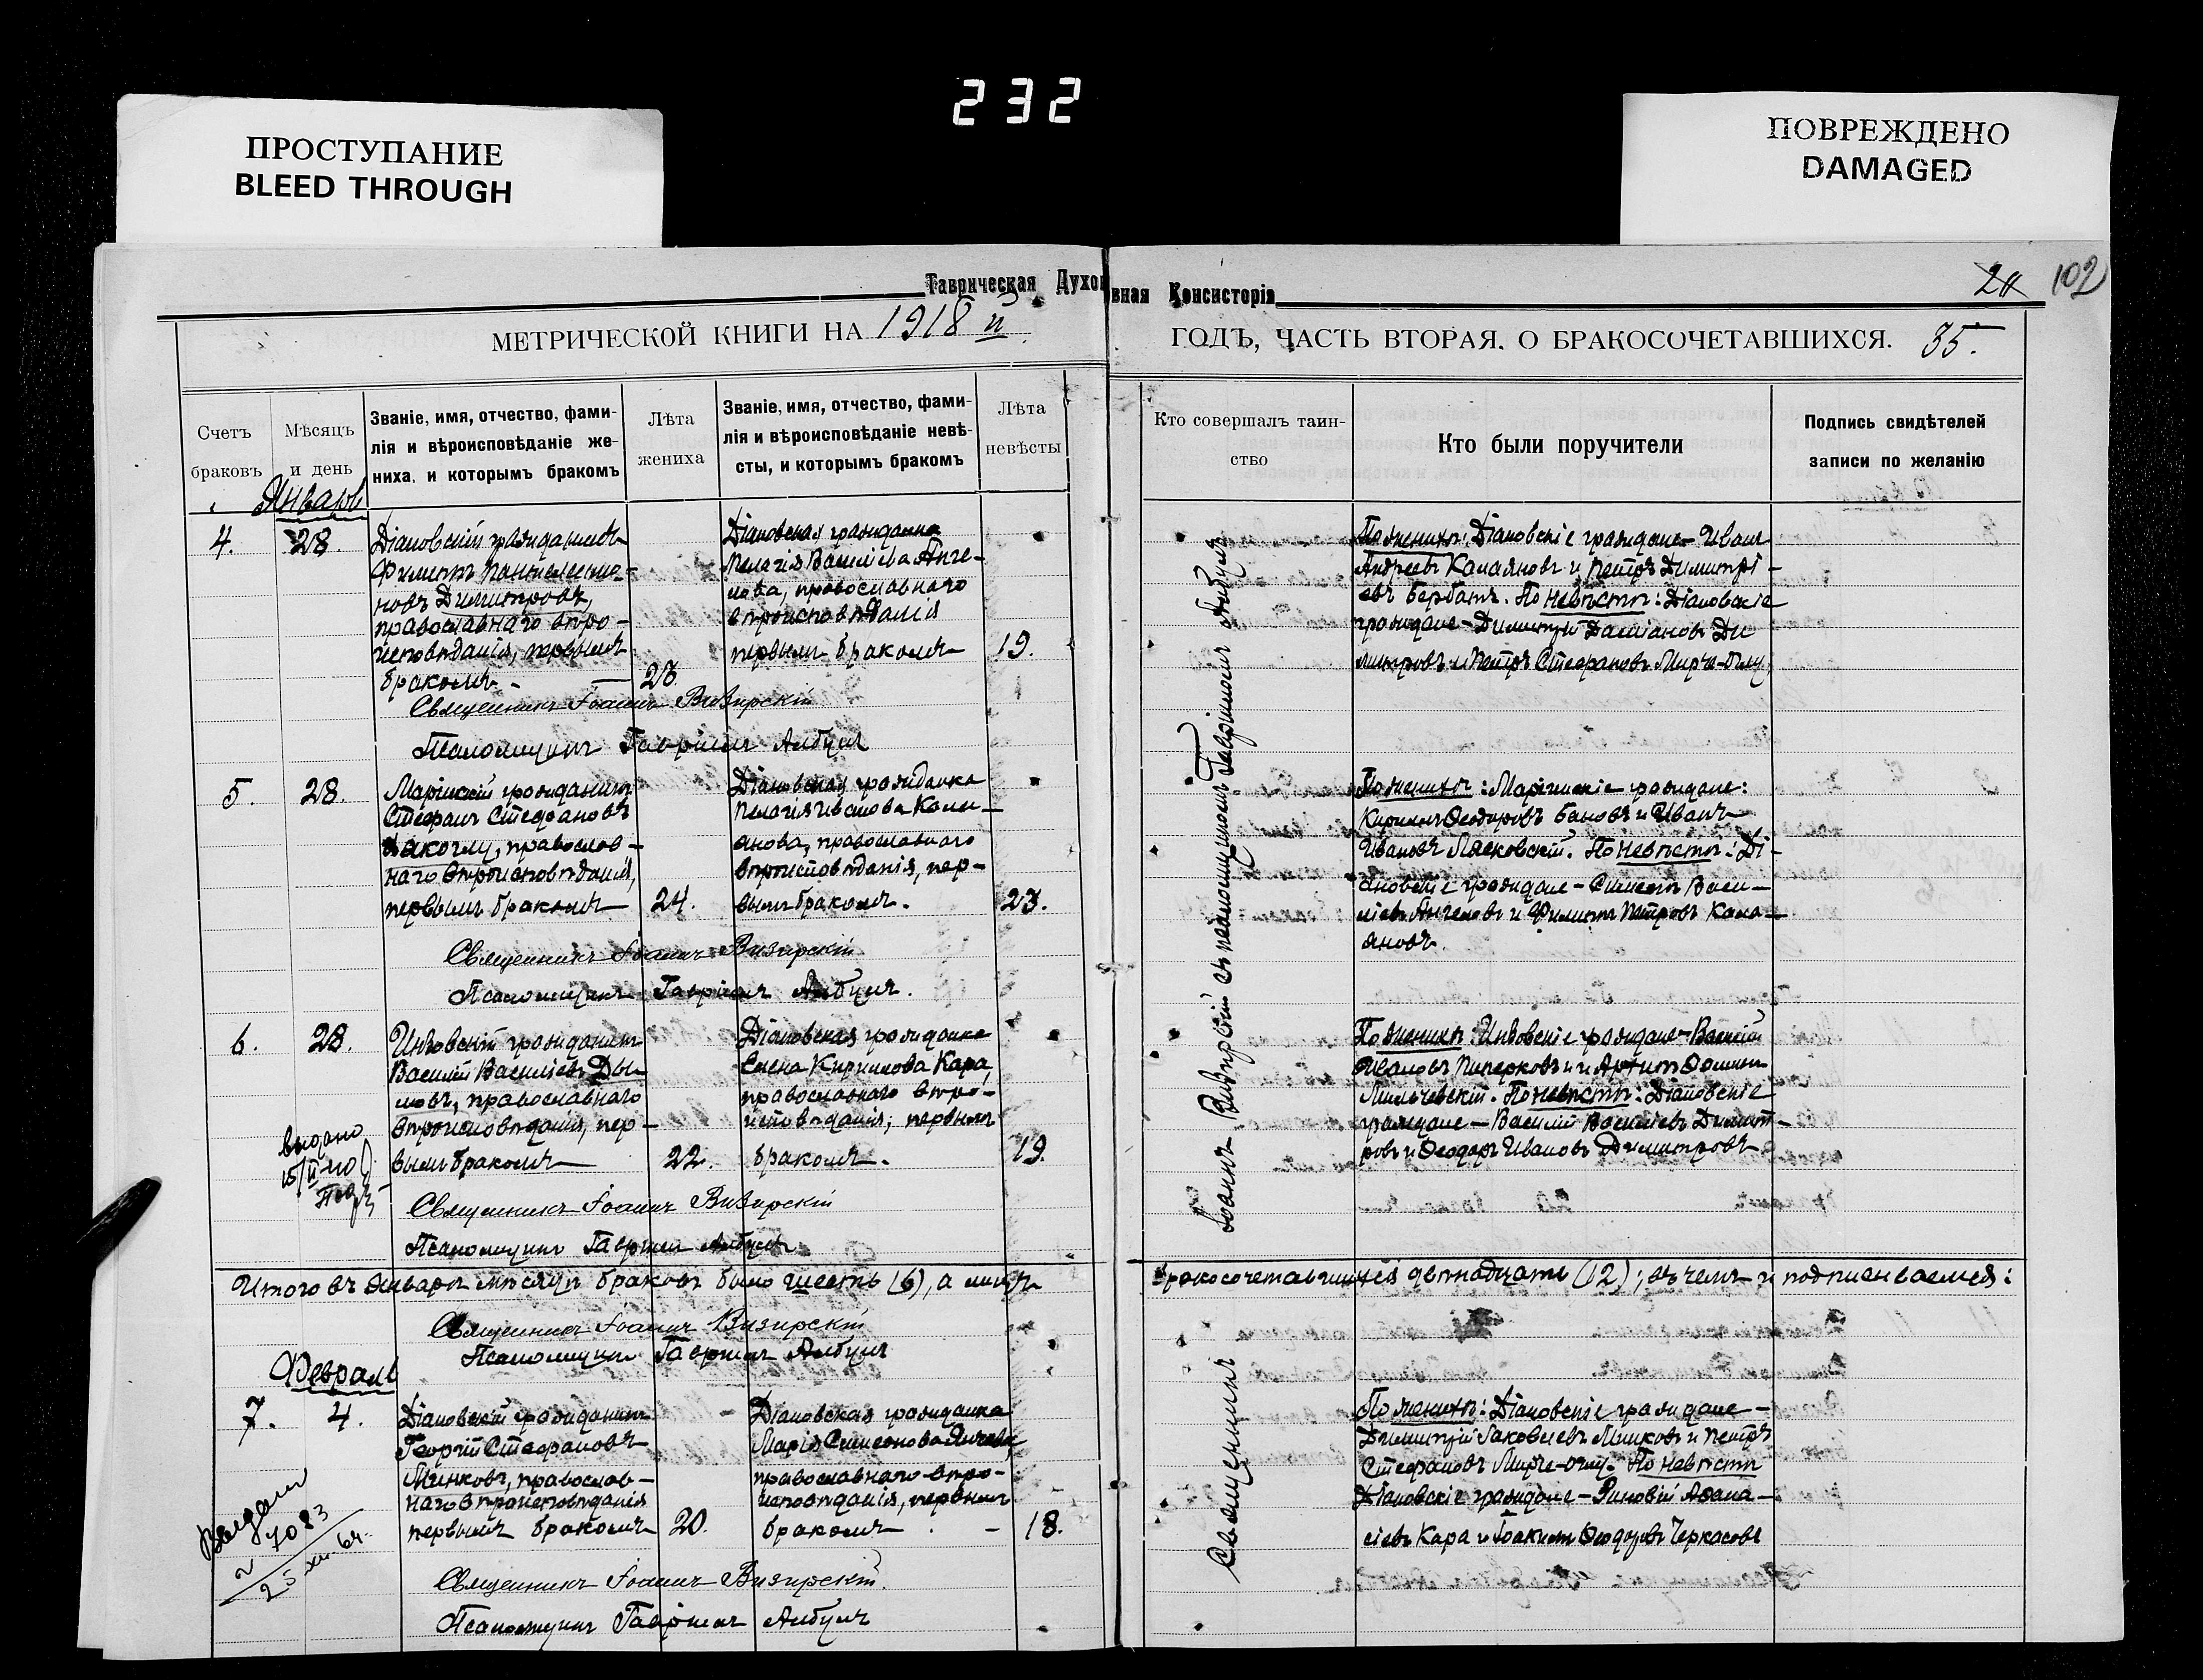 232
ПРОСТУПАНИЕ
BLEED THROUGH
ПОВРЕЖДЕНО
DAMAGED
Таврическая Духовная Консисторія
102
МЕТРИЧЕСКОЙ КНИГИ НА 1918 й
ГОДЪ, ЧАСТЬ ВТОРАЯ. О БРАКОСОЧЕТАВШИХСЯ. 35.
Счетъ
браковъ
Мѣсяцъ
и день
Званіе, имя, отчество, фами-
лія и вѣроисповѣданіе же-
ниха, и которымъ бракомъ
Лѣта
жениха
Званіе, имя, отчество, фами-
лія и вѣроисповѣданіе невѣ-
сты, и которымъ бракомъ
Лѣта
невѣсты
Кто совершалъ таин-
ство
Кто были поручители
Подпись свидѣтелей
записи по желанію
Январь
4.
28.
Діановскій гражданинъ
Филиппъ Пантелеймо-
новъ Димитровъ,
православнаго вѣро-
исповѣданія, первымъ
бракомъ -
28.
Діановская гражданка
Пелагія Василіева Анге-
лова, православнаго
вѣроисповѣданія
первымъ бракомъ
19.
По женихѣ: Діановскіе граждане - Иванъ
Андреевъ Калаяновъ и Петръ Димитрі-
евъ Бербатъ. По невѣстѣ: Діановскіе
граждане - Димитрій Даміановъ Ди
митровъ и Петръ Стефановъ Мирче-оглу
Священникъ Іоаннъ Визирскій
Псаломщикъ Гавріилъ Албулъ
5.
28.
Маріинскій гражданинъ
Стефанъ Стефановъ
православ-
наго вѣроисповѣданія,
первымъ бракомъ
24.
Діановская гражданка
Пелагія Иванова Кала-
янова, православнаго
вѣроисповѣданія, пер-
вымъ бракомъ.
23.
По женихѣ: Маріинскіе граждане:
Кириллъ Ѳеодоровъ Бановъ и Иванъ
Ивановъ Лясковскій. По невѣстѣ: Ді-
ановскіе граждане - Симеонъ Васи-
ліевъ Ангеловъ и Филиппъ Петровъ Кала-
яновъ.
Священникъ Іоаннъ Визирскій
Псаломщикъ Гавріилъ Албулъ.
6.
28.
Инзовскій гражданинъ
Василій Василіевъ Ды-
мовъ, православнаго
вѣроисповѣданія, пер-
вымъ бракомъ
22.
Діановская гражданка
Елена Кириллова Кара,
православнаго вѣро-
исповѣданія, первымъ
бракомъ.
19.
По женихѣ: Инзовскіе граждане - Василій
Ивановъ Пиперковъ и
Мильчевскій. По невѣстѣ: Діановскіе
граждане - Василій Василіевъ Димит-
ровъ и Ѳеодоръ Ивановъ Димитровъ
выдано
Священникъ Іоаннъ Визирскій
Псаломщикъ Гавріилъ Албулъ
Итого въ Январѣ мѣсяцѣ браковъ было шесть (6), а лицъ
бракосочетавшихся двѣнадцать (12); въ чемъ и подписываемся:
Священникъ Іоаннъ Визирскій
Псаломщикъ Гавріилъ Албулъ
Февраль
7.
4.
Діановскій гражданинъ
Георгій Стефановъ
Минковъ, православ-
наго вѣроисповѣданія
первымъ бракомъ
20.
Діановская гражданка
Марія Симеонова Янчева,
православнаго вѣро-
исповѣданія, первымъ
бракомъ -
18.
По женихѣ: Діановскіе граждане -
Димитрій Іаковлевъ Минковъ и Петръ
Стефановъ Мирче-оглу. По невѣстѣ
Діановскіе граждане - Зиновій Аѳана-
сіевъ Кара и Іоакимъ Ѳеодоровъ Черкасовъ
Выдан
7083
Священникъ Іоаннъ Визирскій.
Псаломщикъ Гавріилъ Албулъ
Священникъ Іоаннъ Визирскій съ псаломщикомъ Гавріиломъ Албулъ